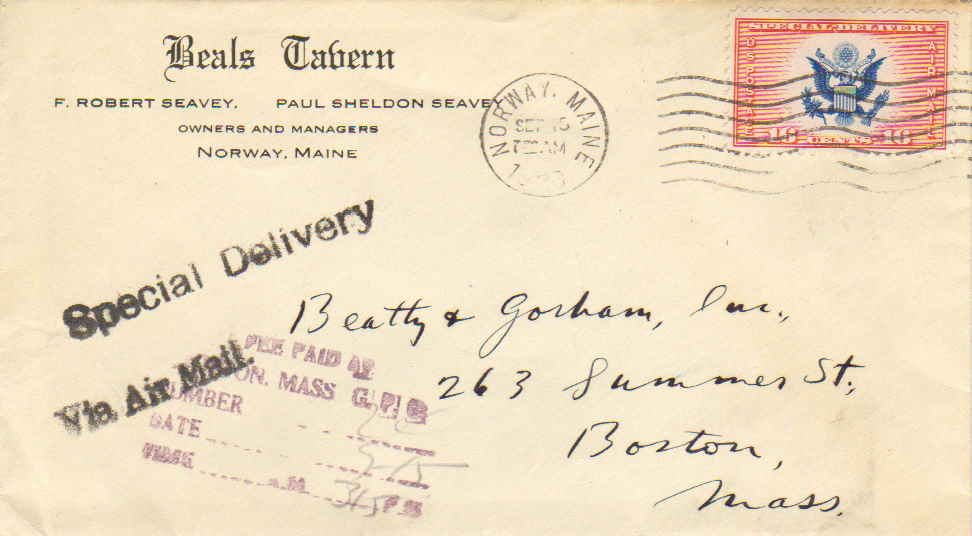 Beals Tavern
F. ROBERT SEAVEY, PAUL SHELDON SEAVEY
OWNERS AND MANAGERS
NORWAY, MAINE
NORWAY, MAINE
SEP 15
AM
SPECIAL DELIVERY
AIR MAIL
16 CENTS 16
Special Delivery
Via Air Mail.
Beatty & Gorham, Inc.,
263 Summer St.,
Boston,
Mass.
FEE PAID AT
ON, MASS G.P.O
NUMBER
DATE 9-15
TIME A.M. 315 P.M